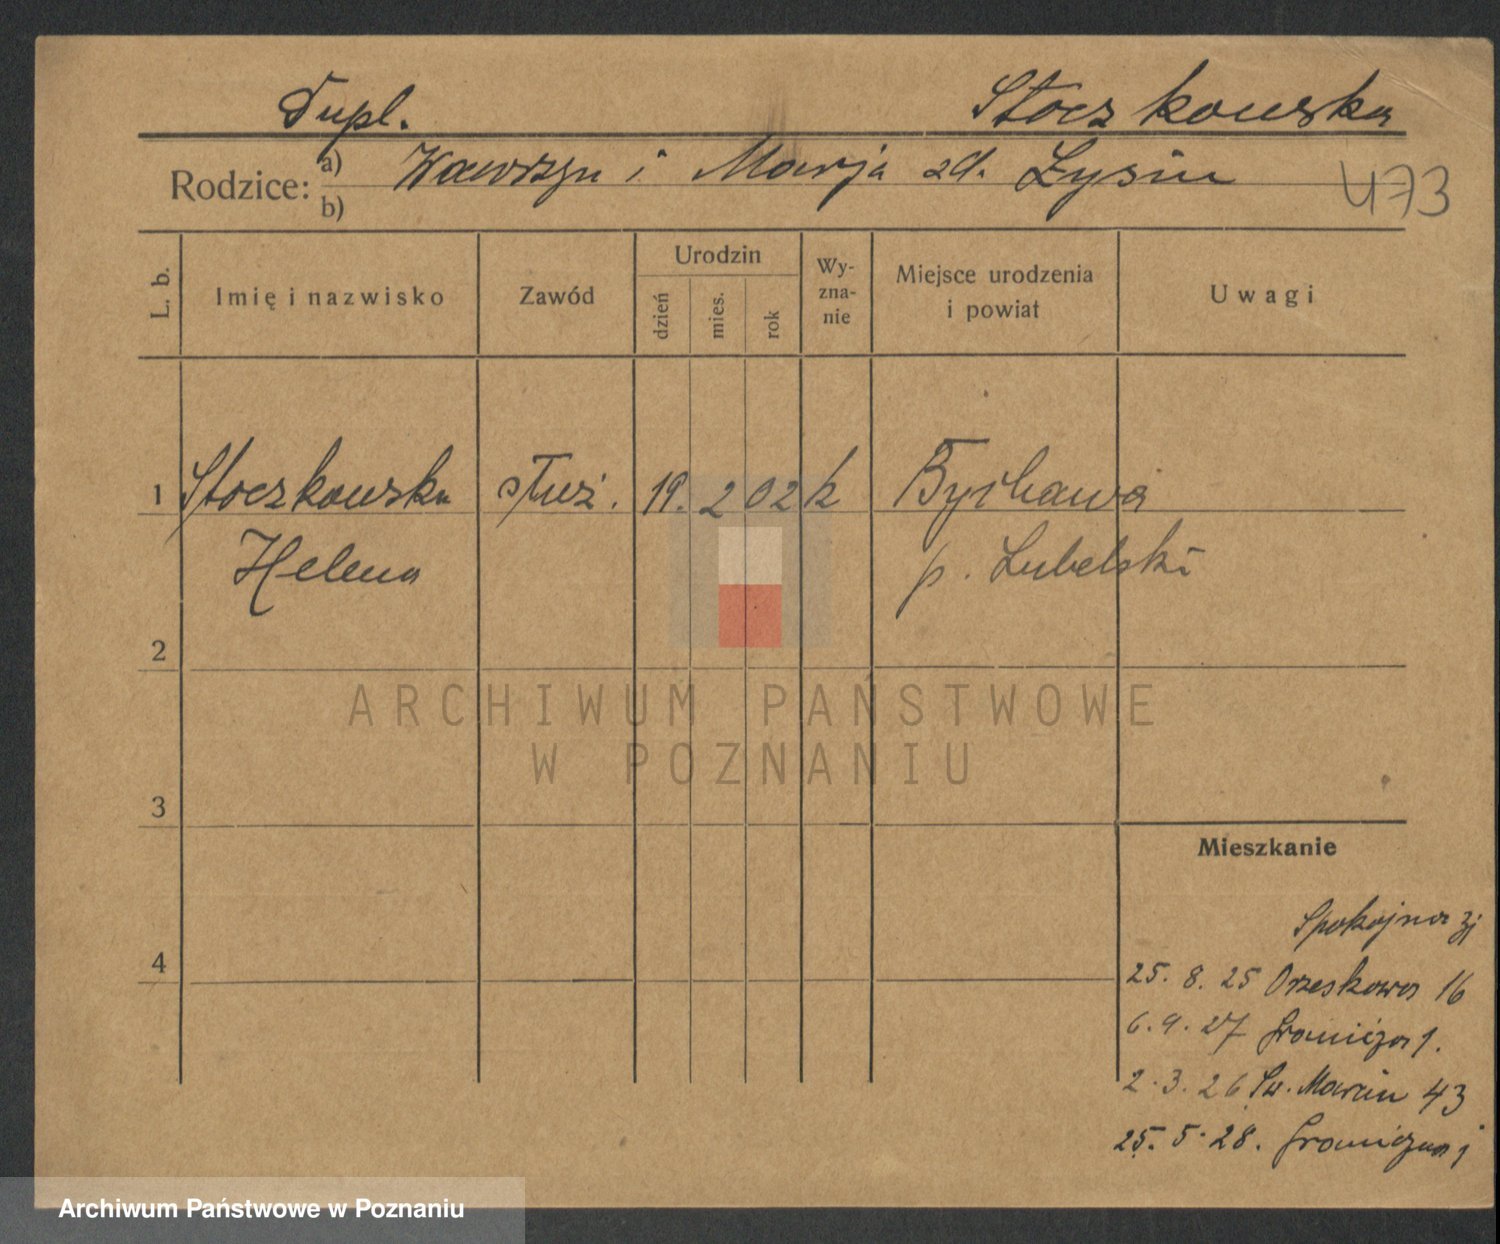 Dupl. Stoczkowska
Rodzice: a) Wawrzyn i Marja zd. Łysiu
b)
473
L. b. Imię i nazwisko Zawód Urodzin dzień mies. rok Wy-zna-nie Miejsce urodzenia i powiat Uwagi
1 Stoczkowska służ. 19. 2 02 k Bychawa
Helena p. Lubelski
2
ARCHIWUM PAŃSTWOWE
W POZNANIU
3
Mieszkanie
Spokojna
4
25. 8. 25 Orzeskowa 16
6. 9. 27 Graniczna 1.
2. 3. 26 Św. Marcin 43
25. 5. 28. Graniczna 1
Archiwum Państwowe w Poznaniu